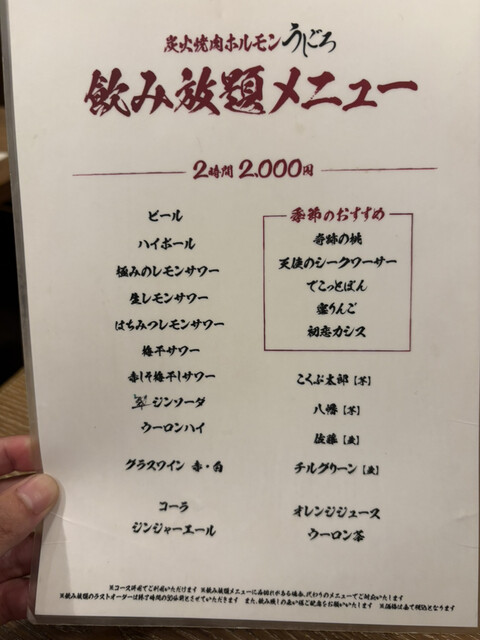 炭火焼肉ホルモンうしごろ
飲み放題メニュー
2時間 2,000円
ビール
ハイボール
極みのレモンサワー
生レモンサワー
はちみつレモンサワー
梅干サワー
赤しそ梅干しサワー
翠ジンソーダ
ウーロンハイ
グラスワイン 赤・白
コーラ
ジンジャーエール
季節のおすすめ
奇跡の桃
天使のシークワーサー
でこっとぽん
蜜りんご
初恋カシス
こくぶ太郎【芋】
八幡【芋】
佐藤【麦】
チルグリーン【麦】
オレンジジュース
ウーロン茶
※コース併用でご利用いただけます ※飲み放題メニューに品切れがある場合、代わりのメニューでご対応いたします
※飲み放題のラストオーダーは終了時間の30分前とさせていただきます また、飲み残しの無い様ご配慮をお願いいたします ※価格は全て税込となります